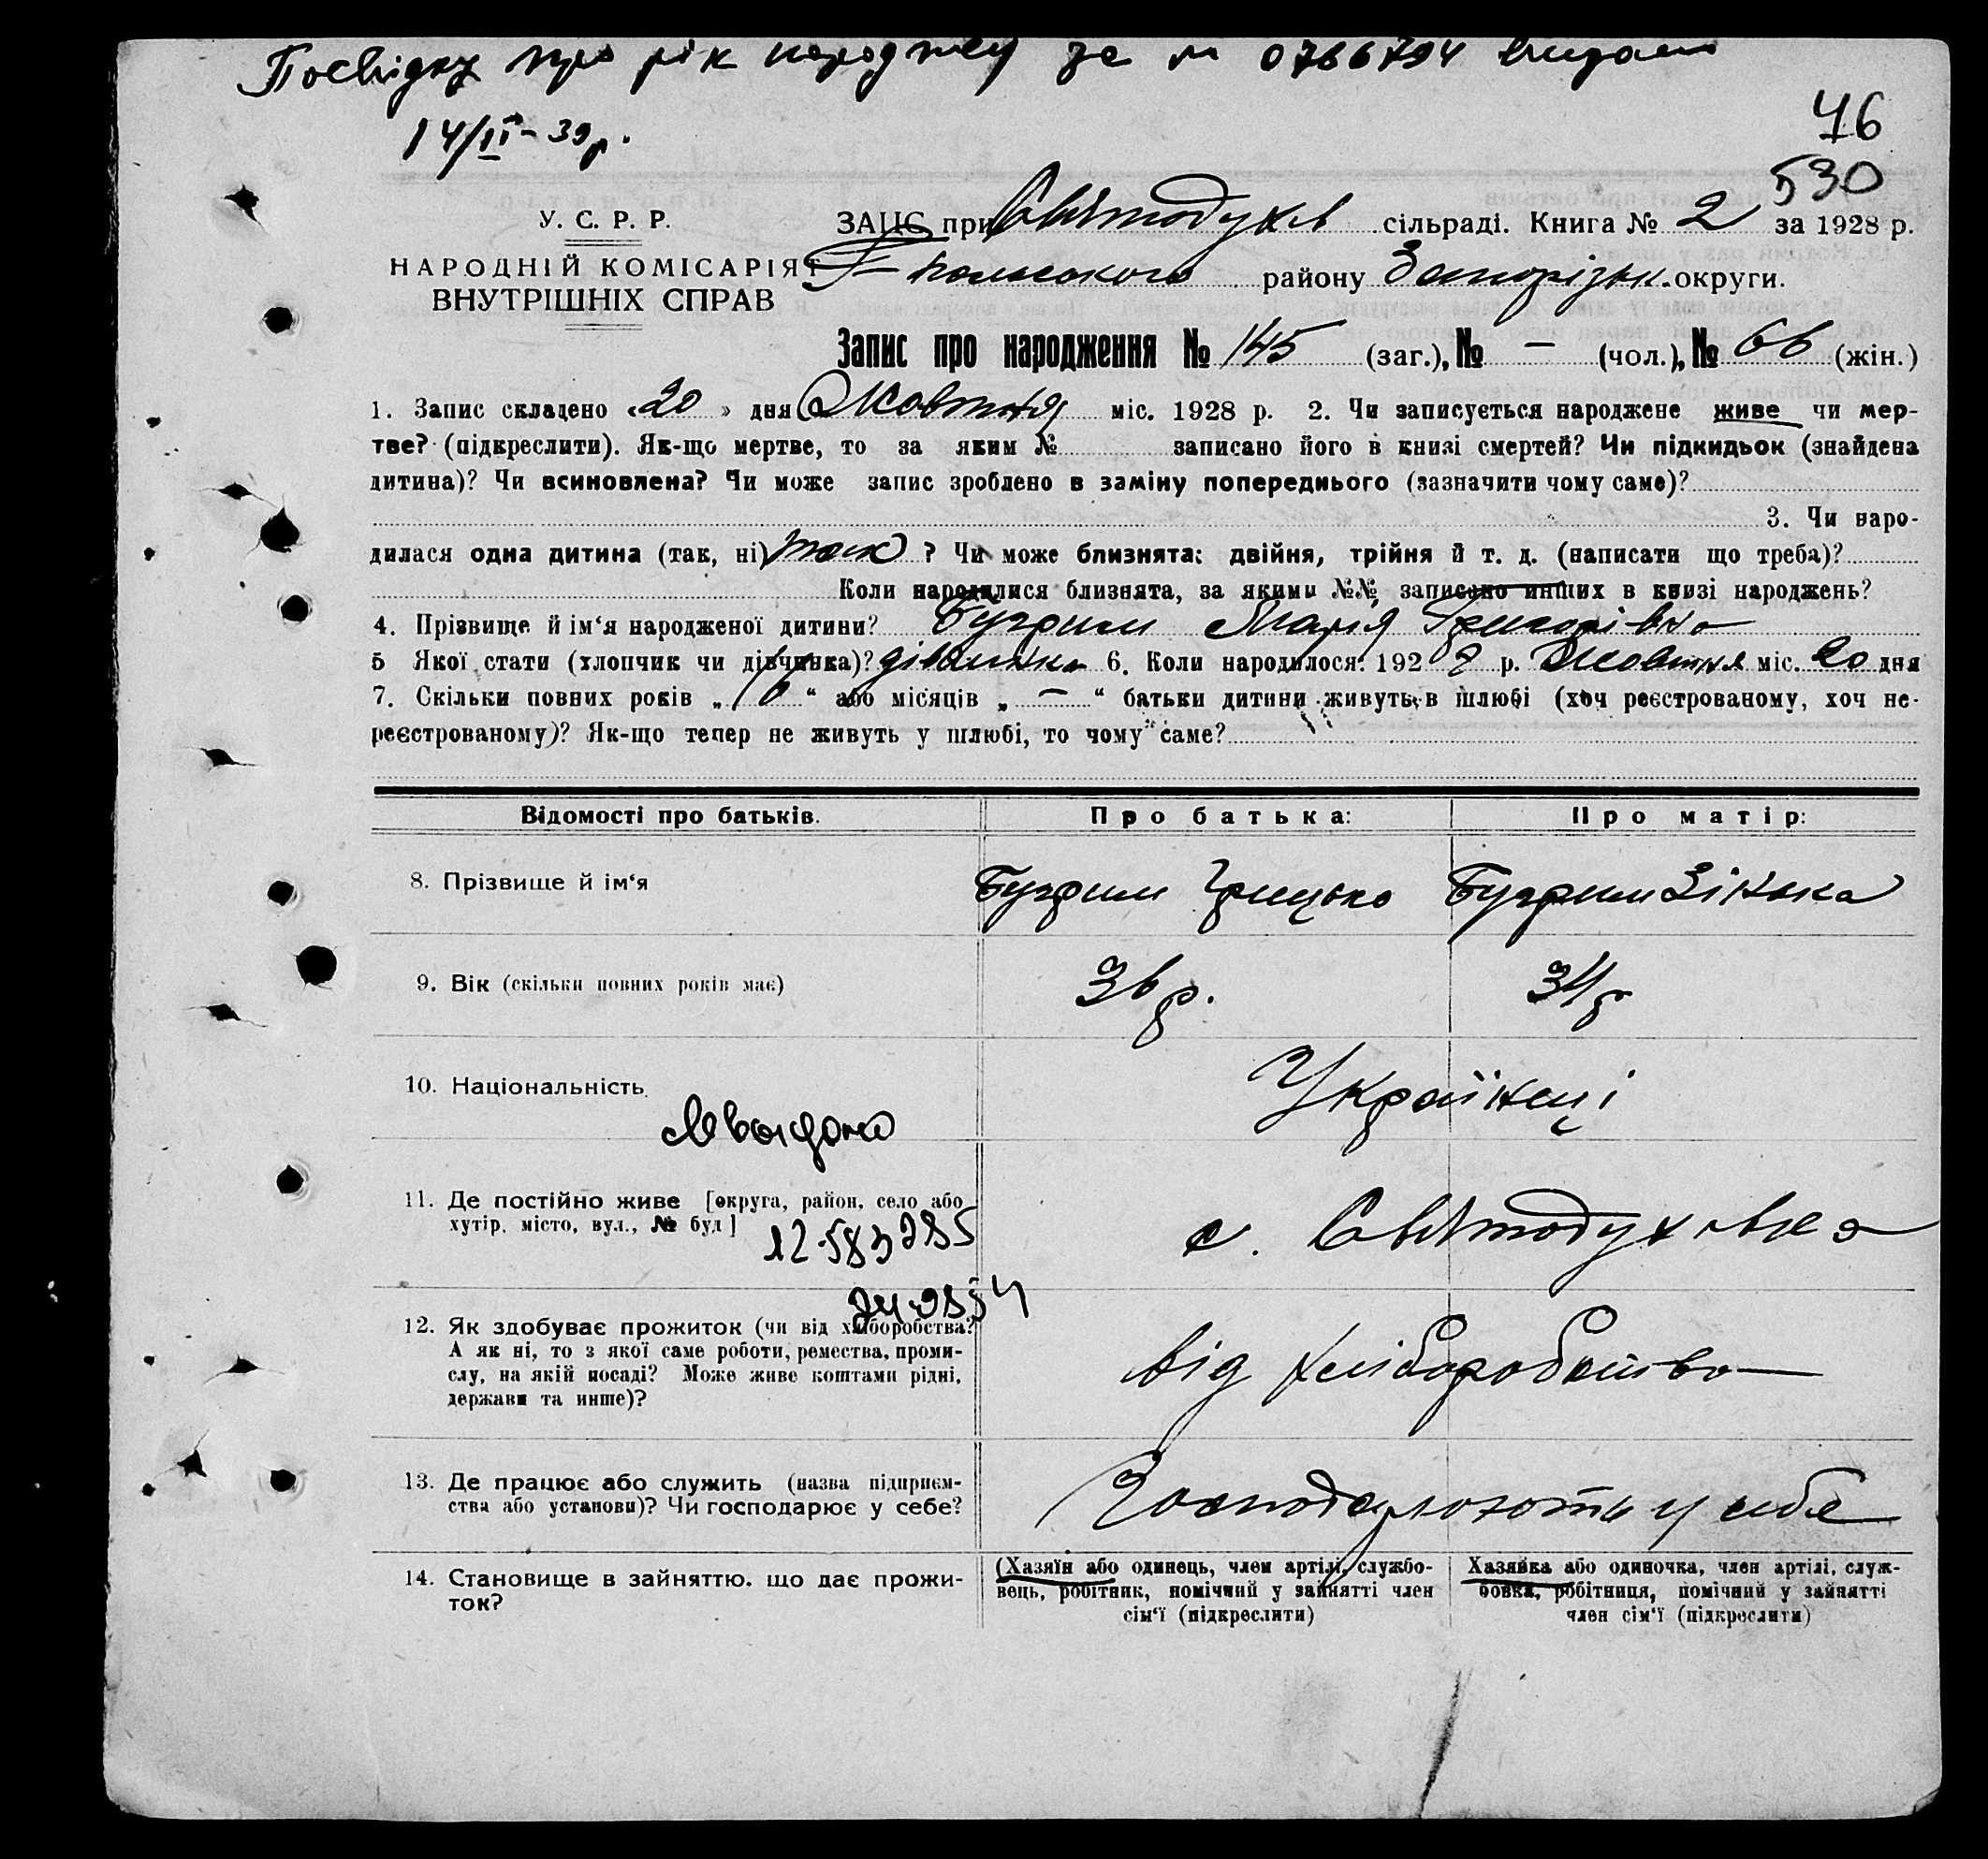 Посвідку про рік народжен за № 0766794 видано
14/II-39р.
46
530
У. С. Р. Р.
ЗАЦС при Святодухів сільраді. Книга № 2 за 1928 р.
НАРОДНІЙ КОМІСАРІЯТ
ВНУТРІШНІХ СПРАВ
району Запорізьк. округи.
Запис про народження № 145 (заг.), № – (чол.), № 66 (жін.)
1. Запис складено «20» дня Жовтня міс. 1928 р. 2. Чи записується народжене живе чи мер-
тве? (підкреслити). Як-що мертве, то за яким № записано його в книзі смертей? Чи підкидьок (знайдена
дитина)? Чи всиновлена? Чи може запис зроблено в заміну попереднього (зазначити чому саме)?
3. Чи наро-
дилася одна дитина (так, ні) так ? Чи може близнята: двійня, трійня й т. д. (написати що треба)?
Коли народилися близнята, за якими №№ записано инших в книзі народжень?
4. Прізвище й ім‘я народженої дитини? Бугрим Марія Григорівна
5 Якої стати (хлопчик чи дівчинка)? дівчинка 6. Коли народилося: 192 р. Жовтня міс. 20 дня
7. Скільки повних років „ “ або місяців „ – “ батьки дитини живуть в шлюбі (хоч реєстрованому, хоч не-
реєстрованому)? Як-що тепер не живуть у шлюбі, то чому саме?
Відомості про батьків. Про батька: Про матір:
8. Прізвище й ім‘я Бугрим Грицько Бугрим Зінька
9. Вік (скільки повних років має) 36 р. 34 р
10. Національність Українці
11. Де постійно живе [округа, район, село або
хутір, місто, вул., № буд] с. Святодухівка
12-583285
12. Як здобуває прожиток (чи від хліборобства?
А як ні, то з якої саме роботи, ремества, проми-
слу, на якій посаді? Може живе коштами рідні,
держави та инше)? від хліборобства
13. Де працює або служить (назва підприєм-
ства або установи)? Чи господарює у себе? Господарюють у себе
14. Становище в зайняттю, що дає прожи-
ток?
(Хазяїн або одинець, член артілі, службо-
вець, робітник, помічний у зайнятті член
сім‘ї (підкреслити)
Хазяйка або одиночка, член артілі, служ-
бовка, робітниця, помічний у зайнятті
член сім‘ї (підкреслити)